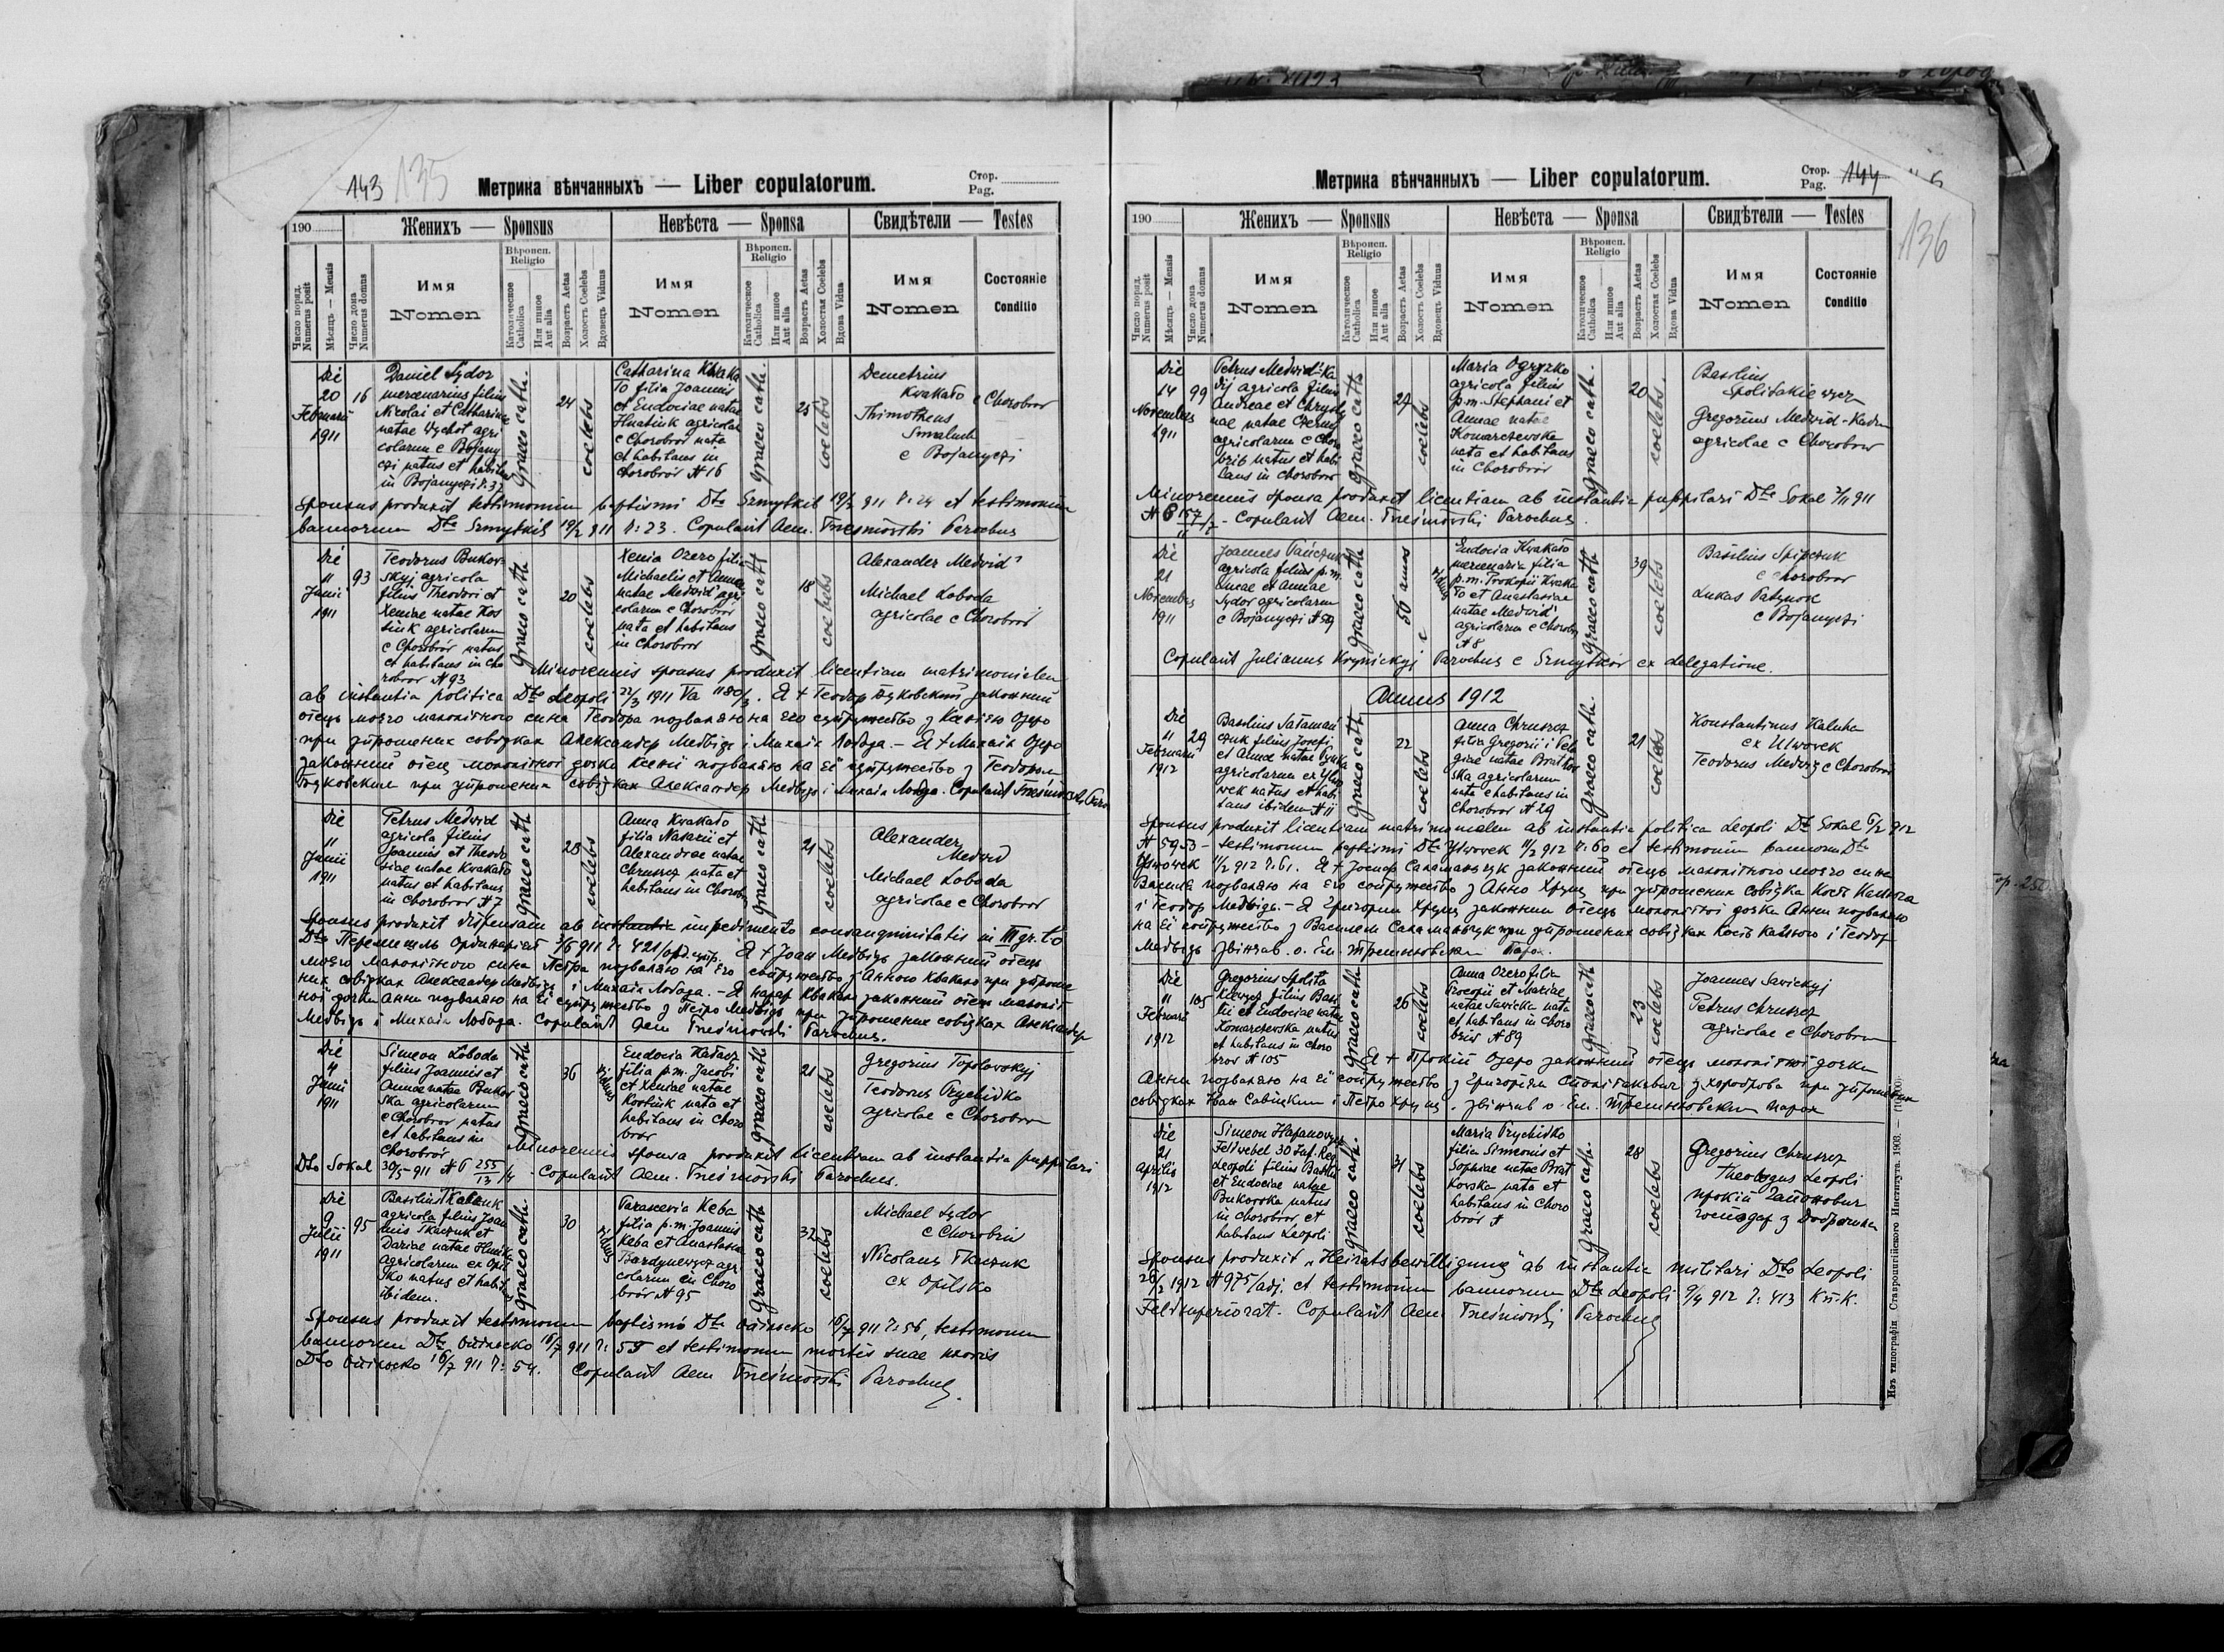 143 135
Метрика вѣнчанныхъ — Liber copulatorum.
Стор.
Pag.
190
Женихъ — Sponsus
Невѣста — Sponsa
Свидѣтели — Testes
Число поряд.
Numerus posit
Мѣсяцъ — Mensis
Число дома
Numerus domus
Имя
Nomen
Вѣроисп.
Religio
Католическое
Catholica
Или инное
Aut alia
Возрастъ Aetas
Холостъ Coelebs
Вдовецъ Viduus
Имя
Nomen
Вѣроисп.
Religio
Католическое
Catholica
Или инное
Aut alia
Возрастъ Aetas
Холостая Coelebs
Вдова Vidua
Имя
Nomen
Состояніе
Conditio
Die
20
Februarii
1911
16
Daniel Sydor
mercenarius filius
Nicolai et Catharinae
natae Wychot agri
colarum e Bojany
czi natus et habitans
in Bojanyczi N. 32
Graeco cath.
24
coelebs
Catharina Kwaka
ło filia Joannis
et Eudociae natae
Hnatiuk agricolae
e Chorobror nata
et habitans in
Chorobror N 16
Graeco cath.
25
coelebs
Demetrius
Kwakało e Chorobror
Thimotheus
Smaluch
e Bojanyczi
Sponsus produxit testimonium baptismi Dto Szmytkib 19/2 911 N: 24 et testimonium
bannorum Dto Szmytkib 19/2 911 N: 23. Copulavit Aem. Treśniowski Parochus
Die
11
Junii
1911
93
Teodorus Bukow
skyj agricola
filius Theodori et
Xeniae natae Kos
tiuk agricolarum
e Chorobrór natus
et habitans in Cho
robror N 93
Graeco cath
20
coelebs
Xenia Ozero filia
Michaelis et Annae
natae Medwid' agri
colarum e Chorobror
nata et habitans
in Chorobror
Graeco cath
18
coelebs
Alexander Medwid'
Michael Łoboda
agricolae e Chorobror
Minorennis sponsus produxit licentiam matrimonialem
ab instantia politica Dto Leopoli 22/3 1911 Va 1180/3. Я + Теодор Буковский законний
отець моего малолітного сина Теодора позваляю на его супружество з Ксенією Озеро
при упрошених совідках Александер Медвідь і Михаіл Лобода. — Я + Михаіл Озеро
законний отець малолітної дочки Ксенії позваляю на еї супружество з Теодором
Буковским при упрошених совідках Александер Медвідь і Михаіл Лобода. Copulavit Treśniowski
Die
11
Junii
1911
Petrus Medwid
agricola filius
Joannis et Theodo
siae natae Kwakało
natus et habitans
in Chorobror N 7
Graeco cath
28
coelebs
Anna Kwakało
filia Nazarii et
Alexandrae natae
Chruszcz nata et
habitans in Chorobror
Graeco cath
21
coelebs
Alexander
Medwid
Michael Łoboda
agricolae e Chorobror
Sponsus produxit dispensam ab impedimento consanguinitatis in III gr. to
Dto Перемишль Ординаріят 2/6 911 N: 421/орд. Я + Іоан Медвідь законний отець
моего малолітного сина Петра позваляю на его супружество з Анною Квакало при упроше
них совідках Александер Медвідь і Михаіл Лобода. — Я Назар Квакало законний отець малоліт
ної дочки Анни позваляю на еї супружество з Петро Медвідь при упрошених совідках Александер
Медвідь і Михаіл Лобода. Copulavit Aem Treśniowski Parochus.
Die
4
Junii
1911
Simeon Łoboda
filius Joannis et
Annae natae Bukow
ska agricolarum
e Chorobror natus
et habitans in
Chorobror
Graeco cath
36
viduus
Eudocia Kałacz
filia p.m. Jacobi
et Xeniae natae
Kostiuk nata et
habitans in Choro
bror
Graeco cath
21
coelebs
Gregorius Topolowskyj
Teodorus Prychidko
agricolae e Chorobror
Minorennis sponsa produxit licentiam ab instantia puppilari
Dto Sokal 30/5 911 N P 255/13/4 Copulavit Aem. Treśniowski Parochus.
Die
9
Julii
1911
95
Basilius Tkaczuk
agricola filius Joan
nis Tkaczuk et
Dariae natae
agricolarum ex Opil
sko natus et habit
ibidem.
Graeco cath.
30
viduus
Parascevia Keba
filia p.m. Joannis
Keba et Anastasiae
Bardynewycz agri
colarum in Choro
bror N 95
Graeco cath
32
coelebs
Michael Sydor
e Chorobrir
Nicolaus Tkaczuk
ex Opilsko
Sponsus produxit testimonium baptismi Dto Опільско 16/7 911 N: 56, testimonium
bannorum Dto Опільско 16/7 911 N: 55 et testimonium mortis suae uxoris
Dto Опільско 16/7 911 N: 54. Copulavit Aem Treśniowski Parochus.
Метрика вѣнчанныхъ — Liber copulatorum.
Стор.
Pag. 144
136
190
Женихъ — Sponsus
Невѣста — Sponsa
Свидѣтели — Testes
Число поряд.
Numerus posit
Мѣсяцъ — Mensis
Число дома
Numerus domus
Имя
Nomen
Вѣроисп.
Religio
Католическое
Catholica
Или инное
Aut alia
Возрастъ Aetas
Холостъ Coelebs
Вдовецъ Viduus
Имя
Nomen
Вѣроисп.
Religio
Католическое
Catholica
Или инное
Aut alia
Возрастъ Aetas
Холостая Coelebs
Вдова Vidua
Имя
Nomen
Состояніе
Conditio
Die
14
Novembris
1911
99
Petrus Medwid-Ka
dij agricola filius
Andreae et Chrysty
nae natae Czerny
agricolarum e Choro
brib natus et habi
tans in Chorobror
Graeco cath
27
coelebs
Maria Ogryzko
agricola filius
p.m. Stephani et
Annae natae
Komarczewska
nata et habitans
in Chorobror
Graeco cath.
20
coelebs.
Basilius
Spolitakiewycz
Gregorius Medwid-Kadij
agricolae e Chorobror
Minorennis sponsa produxit licentiam ab instantia puppilari Dto Sokal 2/11 911
Copulavit Aem. Treśniowski Parochus.
Die
21
Novembris
1911
Joannes Pańczuk
agricola filius p.m.
Lucae et Annae
Sydor agricolarum
e Bojanyczi N 59
Graeco cath
56 annos
viduus
Eudocia Kwakało
mercenaria filia
p.m. Prokopii Kwaka
ło et Anastasiae
natae Medwid'
agricolarum e Chorobr
N 8
Graeco cath
39
coelebs
Basilius Spipczuk
e Chorobror
Lukas Patynok
e Bojanyczi
Copulavit Julianus Krynickyj Parochus e Szmytkor ex delegatione.
Annus 1912
Die
11
Februarii
1912
29
Basilius Sałaman
czuk filius Josefi
et Annae natae
agricolarum ex Ulwo
wek natus et habi
tans ibidem N 11
Graeco cath
22
coelebs
Anna Chruszcz
filia Gregorii i Pela
giae natae Bratkow
ska agricolarum
nata e habitans in
Chorobror N 29
Graeco cath.
21
coelebs
Konstantinus Kaluha
ex Ulwovek
Teodorus Medwid e Chorobror
Sponsus produxit licentiam matrimonialem ab instantia politica Leopoli Dto Sokal 6/2 912
N 5953 — testimonium baptismi Dto Ulwovek 11/2 912 N: 60 et testimonium bannorum Dto
Ulwowek 11/2 912 N: 61. Я + Іосиф Саламанчук законний отець малолітного моего сина
Василя позваляю на его супружество з Анно Хрущ при упрошених совідка Кость Калюга
і Теодор Медвідь. — Я Григорий Хрущ законний отець малолітної дочки Анни позваляю
на еї супружество з Василем Саламанчук при упрошених совідках Кость Калюга і Теодор
Медвідь Звінчав о. Ем. Трешньовский Парох.
Die
11
Februarii
1912
105
Gregorius Spolita
kiewycz filius Basi
lii et Eudociae natae
Komarczewska natus
et habitans in Choro
bror N 105
Graeco cath
26
coelebs
Anna Ozero filia
Procopii et Mariae
natae Sawicka nata
et habitans in Choro
briv N 89
Graeco cath
23
coelebs
Joannes Sawickyj
Petrus Chruszcz
agricolae e Chorobror
Я + Прокіп Озеро законний отець малолітної дочки
Анни позваляю на еї супружество з Григориєм Сполітакевич з Хороброва при упрошених
совідках Іван Савіцким і Петро Хрущ. Звінчав о. Ем. Трешньовский парох
Die
21
Aprilis
1912
Simeon Hapanowycz
Feldwebel 30 Inf. Reg.
Leopoli filius Basilii
et Eudociae natae
Bukowska natus
in Chorobror et
habitans Leopoli
Graeco cath.
31
coelebs
Maria Prychidko
filia Simeonis et
Sophiae natae Brat
kowska nata et
habitans in Choro
brór N
Graeco cath.
28
coelebs
Gregorius Chruszcz
Theologus Leopoli
Прокіп Гапонович
господар з Добрячина
Sponsus produxit „Heiratsbewilligung" ab instantia militari Dto Leopoli
20/2 1912 N 975/adj. et testimonium bannorum Dto Leopoli 9/4 912 N: 413 K.u.K.
Feldsuperiorat. Copulavit Aem Treśniowski Parochus
Изъ типографіи Ставропигійского Института. 1908. — (1000).